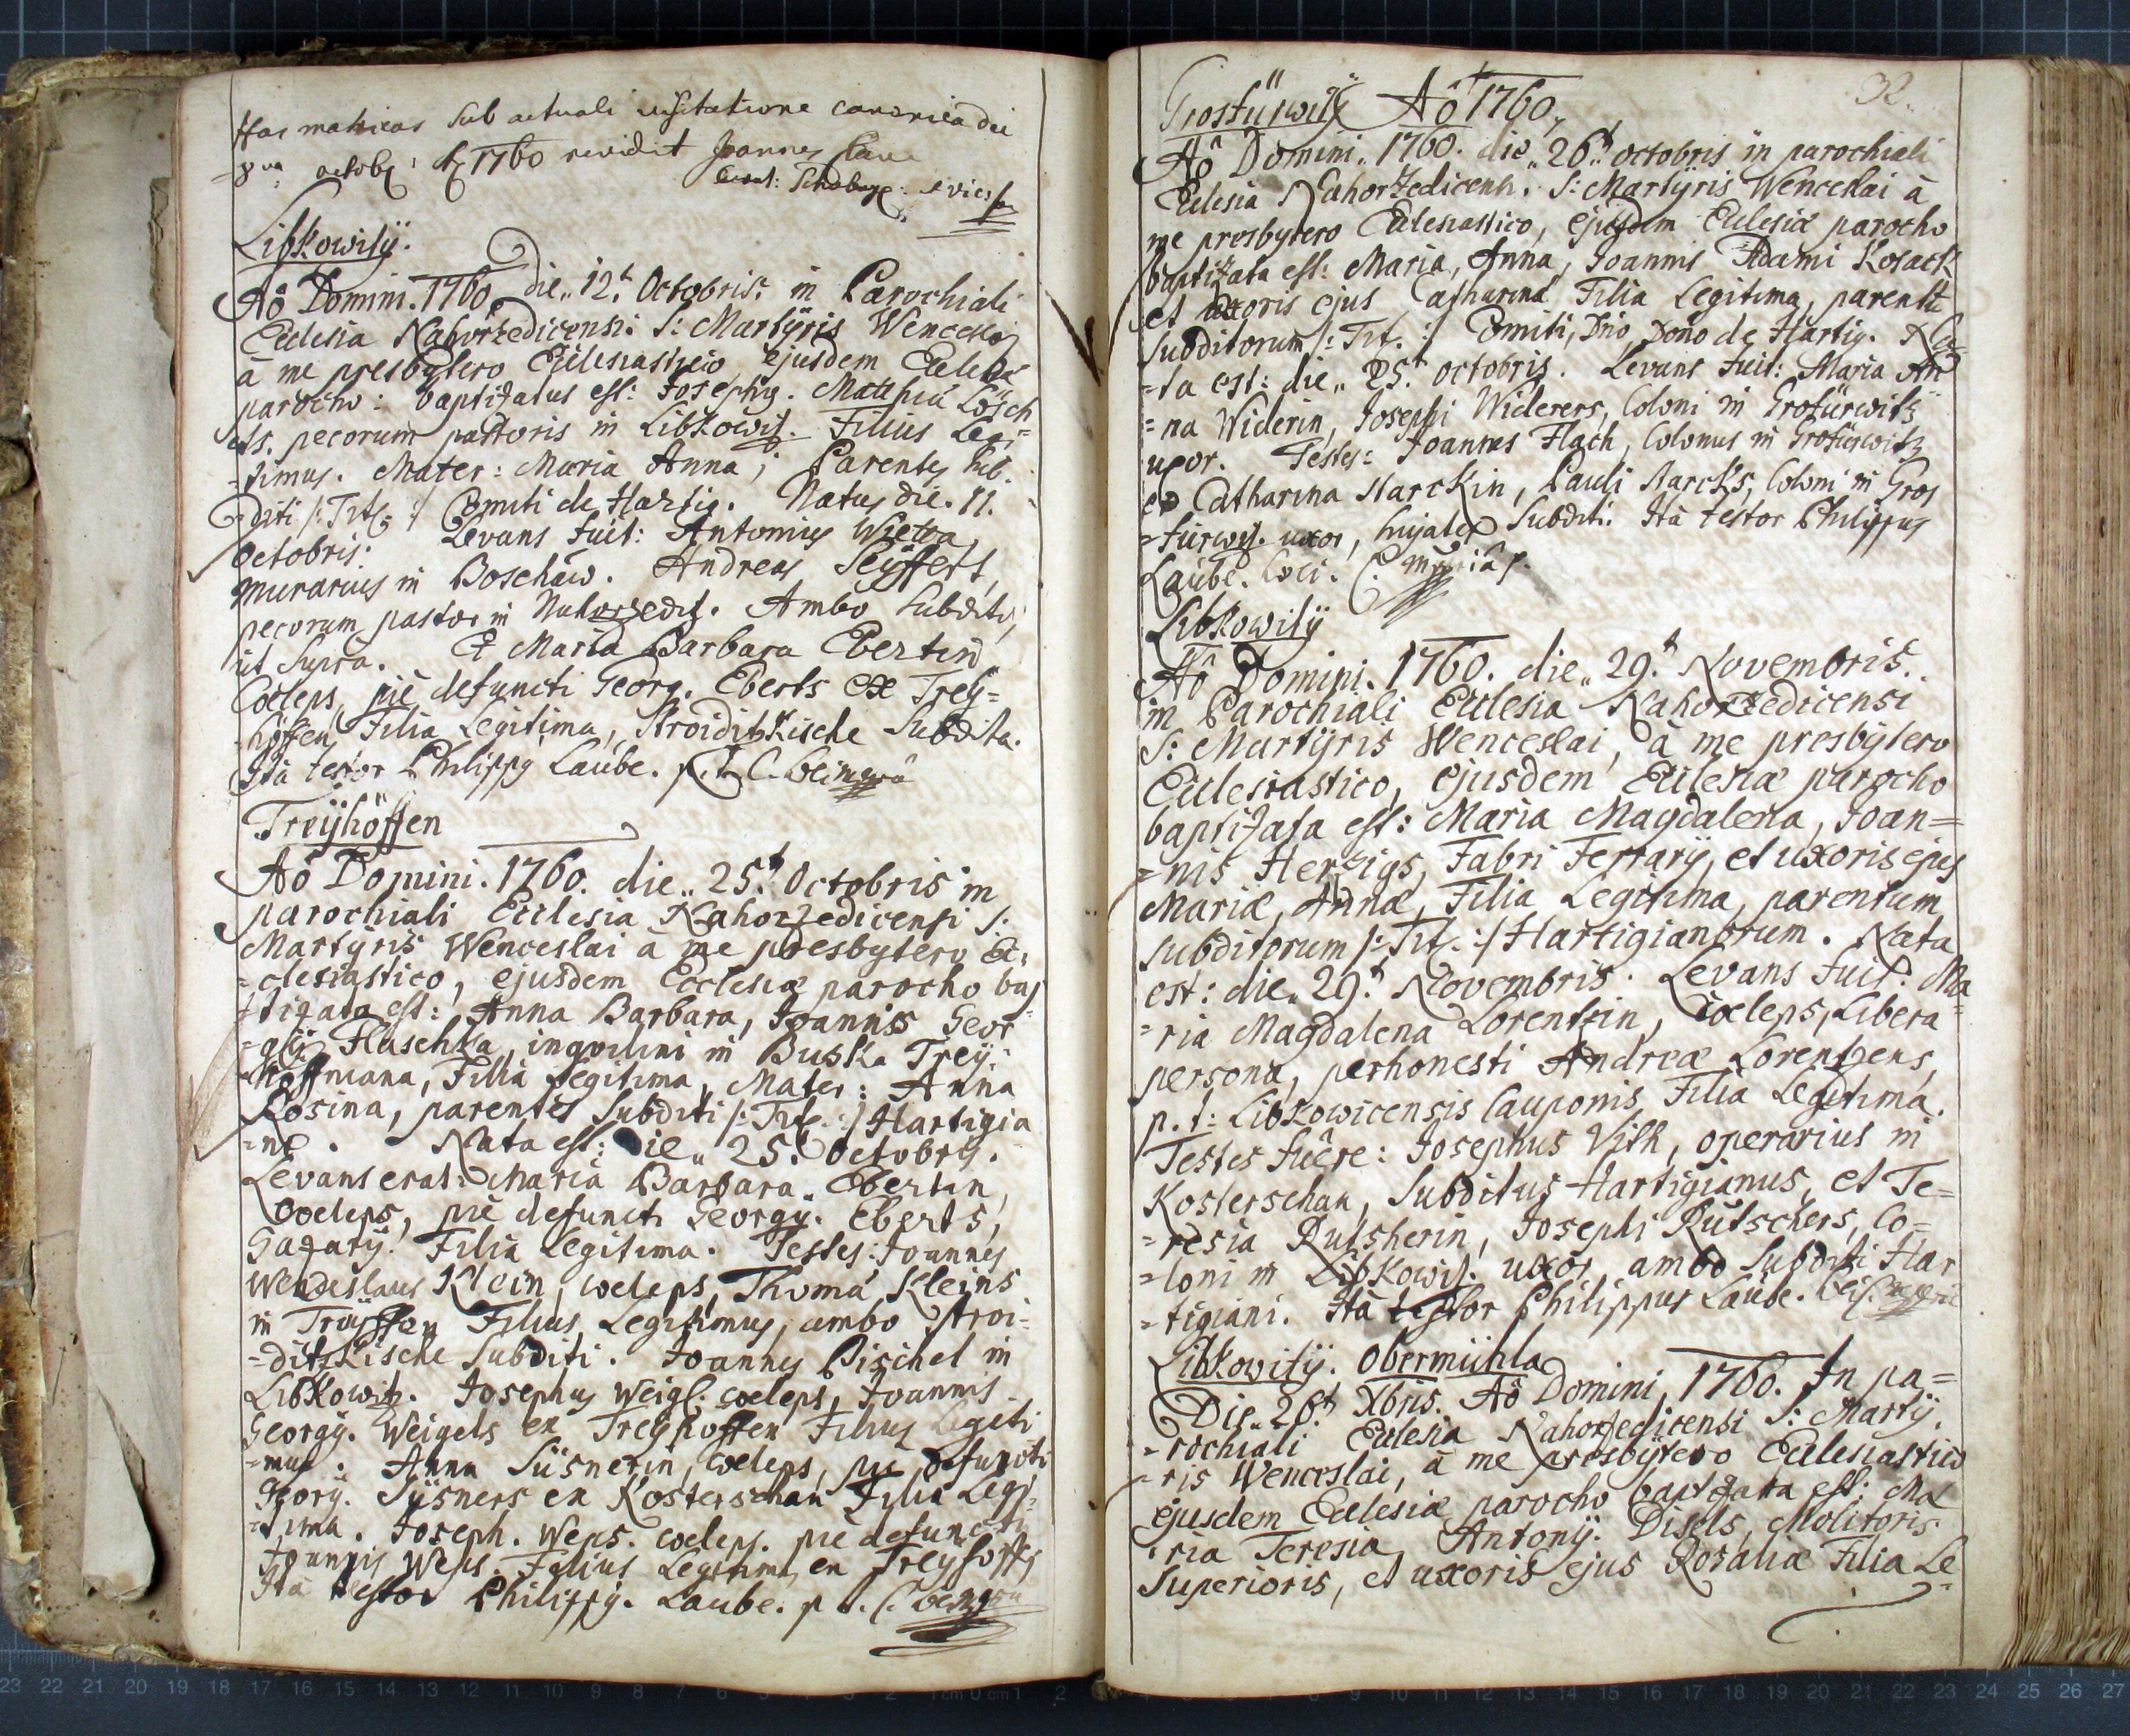 Has matricas Sub actuali visitatione canonica die
8va octob: 1760 revidit Joannes
Libkowitz.
Aô Domini. 1760. die 12t. Octobris: in Parochiali
Ecclesia Nahorzedicensi S: Martÿris Wenceslai
à me presbytero Ecclesiastico ejusdem Ecclesiæ
parocho: baptizatus est: Josephus. Matthiæ Lösch
pecorum pastoris in Libkowit. Filius Legi=
=timus. Mater: Maria Anna, Parentes Sub.
diti /: Tit: :/ Comiti de Hartig. Natus die. 11.
Octobris. Levans fuit: Antonius
murarius in Boschaw. Andreas Seÿfferts,
pecorum pastor in Nahorzedit. Ambo Subditi,
ut Supra. Et Maria Barbara Ebertin
Coelebs, piè defuncti Georg. Eberts ex Treÿ=
höffen Filia Legitima, Stroiditzkische Subdita.
Ità testor Philippus Laube. p. t. C. Loci mpria
Treÿhöffen
Aô Domini. 1760. die 25t. Octobris in
parochiali Ecclesia Nahorzedicensi S:
Martÿris Wenceslai à me presbytero Ec=
=clesiastico, ejusdem Ecclesiæ parocho bap
=tizata est: Anna Barbara, Joannis Geor
=gÿ Haschka, inquilini in Buska Treÿ=
=hoffniana, Filia Legitima, Mater: Anna
Rosina, parentes Subditi /: Tit: :/ Hartigia
=ni. Nata est: Die 25t. Octobris.
Levans erat: Maria Barbara Ebertin,
Coelebs, piè defuncti Georgÿ. Eberts,
Filia Legitima. Testes: Joannes
Wenceslaus Klein, coelebs, Thomæ Kleins
in Treÿhoffen Filius Legitimus, ambo Stroi=
=ditzkische Subditi. Joannes Pischel in
Libkowitz. Josephus Weigl. coelebs, Joannis
Georgÿ. Weigels ex Treÿhoffen Filius Legiti
=mus. Anna Süsnerin, Coelebs, pie defuncti
Georg. Süsners ex Kosterschan Filia Legi=
=tima. Joseph. Weps. coelebs. pie defuncti
Joannis Weps. Filius Legitimus ex Treÿhoffen
Ità testor Philippus. Laube. p. t. C. Loci mpria
32.
Grostürwitz Aô 1760.
Aô Domini 1760. die 26t. octobris in parochiali
Eclesia Nahorzedicensi. S: Martÿris Wenceslai à
me presbytero Eclesiastico, Ejusdem Eclesiæ parocho
baptizata est: Maria, Anna, Joannis Adami Kosack
et uxoris ejus Catharinæ Filia Legitima, parentu
Subditorum /: Tit. :/ Comiti, Dno, Dono de Hartig. Na
=ta est: die 25t. octobris. Levans fuit: Maria An
=na Widerin, Josephi Widerers, Coloni in Grostürwitz
uxor. Testes: Joannes Flach, Colonus in Grostürwitz
et Catharina Starckin, Pauli Starcks, Coloni in Gros
=türwit. uxor, hujates Subditi. Ità testor Philippus
Laube. Loci. C. mpria
Libkowitz
Aô Domini. 1760. die 29t. Novembris.
in Parochiali Ecclesia Nahorzedicensi
S: Martÿris Wenceslai, à me presbytero
Ecclesiastico, ejusdem Ecclesiæ parocho
baptizata est: Maria Magdalena, Joan=
=nis Herzigs, Fabri Ferrarÿ, et uxoris ejus
Mariæ, Annæ, Filia Legitima, parentum
subditorum /: Tit. :/ Hartigianorum. Nata
est: die 29t. Novembris. Levans fuit: Ma
=ria Magdalena Lorentzin, coelebs, Libera
persona, perhonesti Andreæ Lorentzens,
p. t: Libkowicensis Cauponis Filia Legitima.
Testes fuêre: Josephus Vith, operarius in
Kosterschan, Subditus Hartigianus, et Te=
=resia Rutsherin, Josephi Rutschers, Co=
=loni in Libkowit. uxor, ambo Subditi Har
=tigiani. Ità testor Philippus Laube.
Libkowitz. Obermühla
Die 26t. Xbris. Aô Domini, 1760. In pa=
=rochiali Ecclesia Nahorzedicensi S: Martÿ.
=ris Wenceslai, à me presbÿtero Ecclesiastico
ejusdem Ecclesiæ parocho baptizata est: Ma
=ria Teresia, Antonÿ. Disels, Molitoris
Superioris, et uxoris ejus Rosaliæ Filia Le=